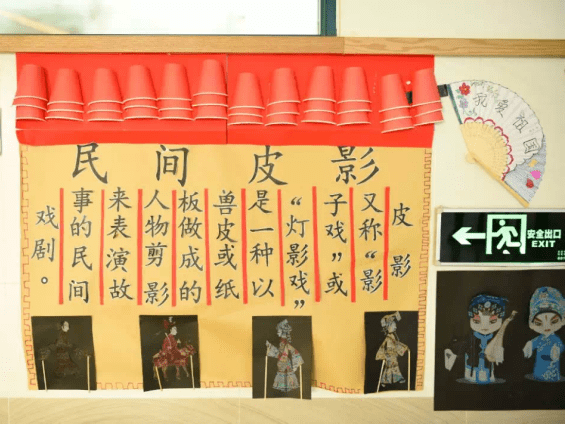 民间皮影
皮影
又称“影
子戏”或
“灯影戏”
是一种以
兽皮或纸
板做成的
人物剪影
来表演故
事的民间
戏剧。
我爱祖国
安全出口
EXIT